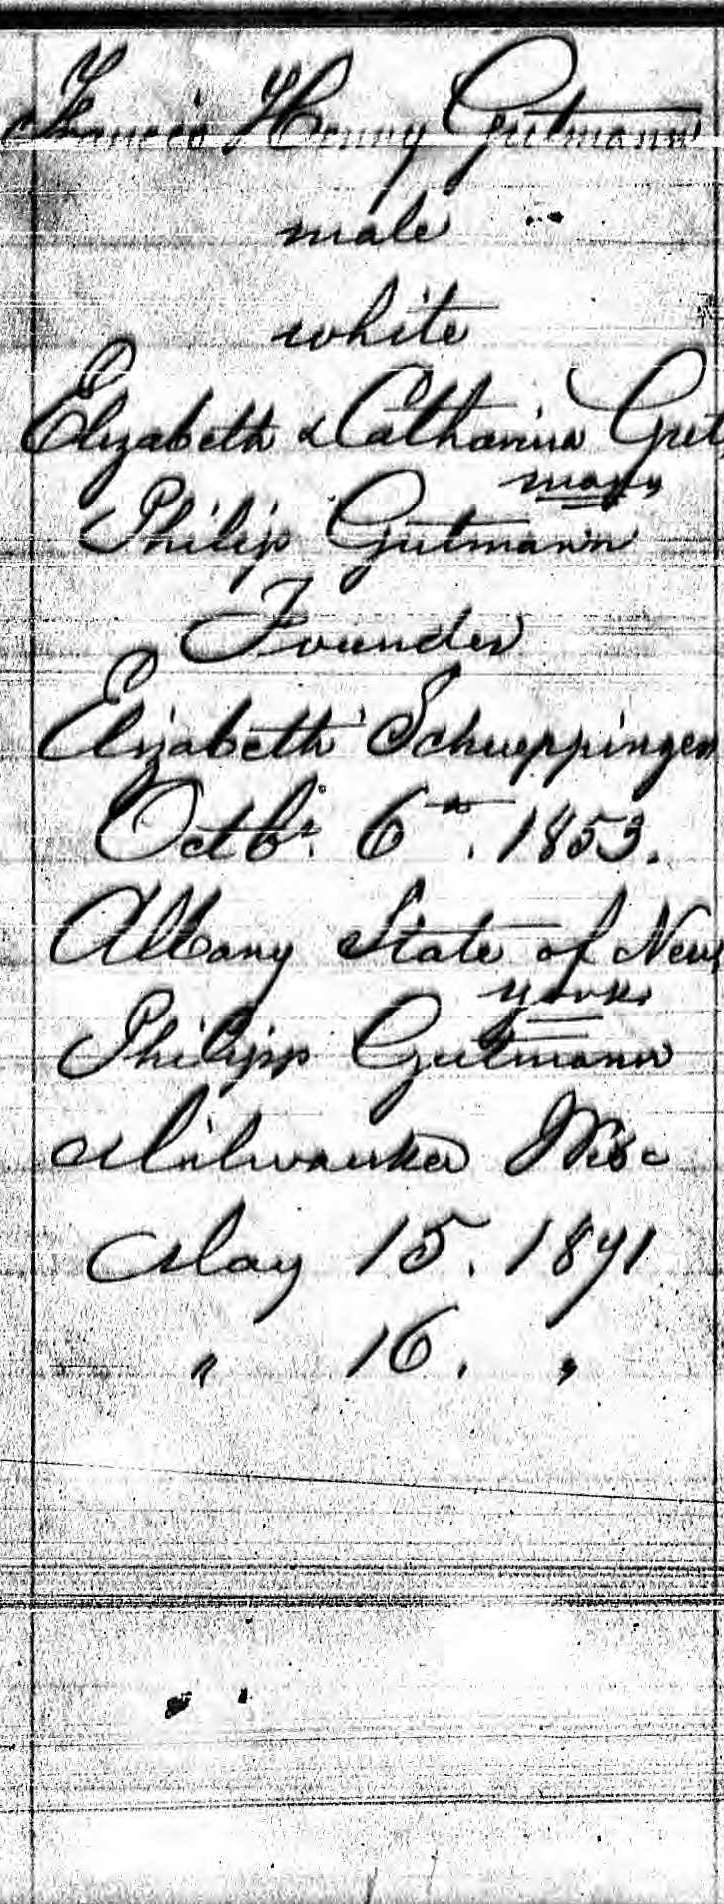 Francis Henry Gutmann
male
white
Elizabeth & Catharina Gut
mann
Philip Gutmann
Founder
Elizabeth Schueppingen
Octbr. 6th. 1853.
Albany State of New
York
Philipp Gutmann
Milwaukee Wisc
May 15. 1871
" 16. "